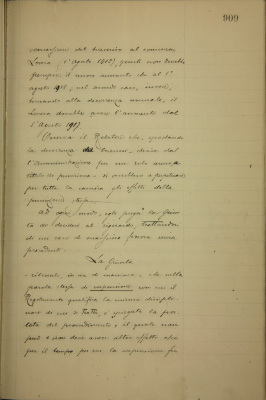 909
del al
Lovera (1° agosto 1912) quindi non dovrebbe
fruire il nuovo aumento che al 1°
agosto 1918; nel secondo caso, invece,
tornando alla decorrenza normale, il
Lovera dovrebbe avere l'aumento dal
1° Agosto 1917.
Osserva il Relatore che, spostando
la decorrenza
l'Amministrazione per un solo anno a
titolo di punizione - si verrebbero a perpetuare
per tutta la carriera gli effetti della
punizione stessa.
Ad ogni modo, egli prega la Giunta
di decidere al riguardo trattandosi
di un caso di massima senza
precedenti.
La Giunta
- ritenuto, in via di massima, che nella
parola stessa di sospensione con cui il
Regolamento qualifica la misura discipli-
nare di cui si tratta, è spiegata la por-
tata del provvedimento, il quale non
può e non deve avere altro effetto che
per il tempo per cui la sospensione fu